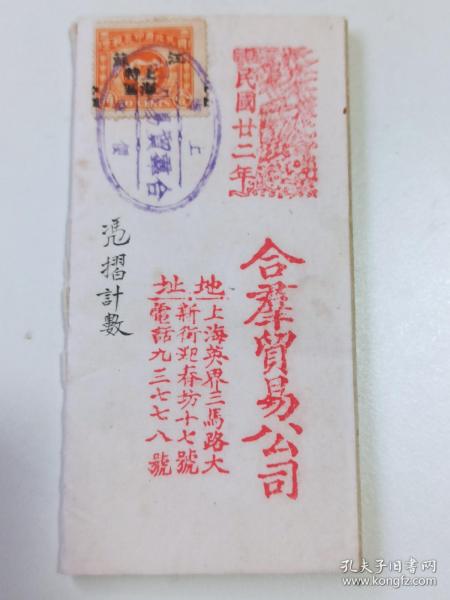 民國廿二年
合羣貿易公司
地址
上海英界三馬路大
新街迎春坊十七號
電話九三七七八號
憑摺計數
江蘇
上海
合羣貿易
孔夫子旧书网
www.kongfz.com